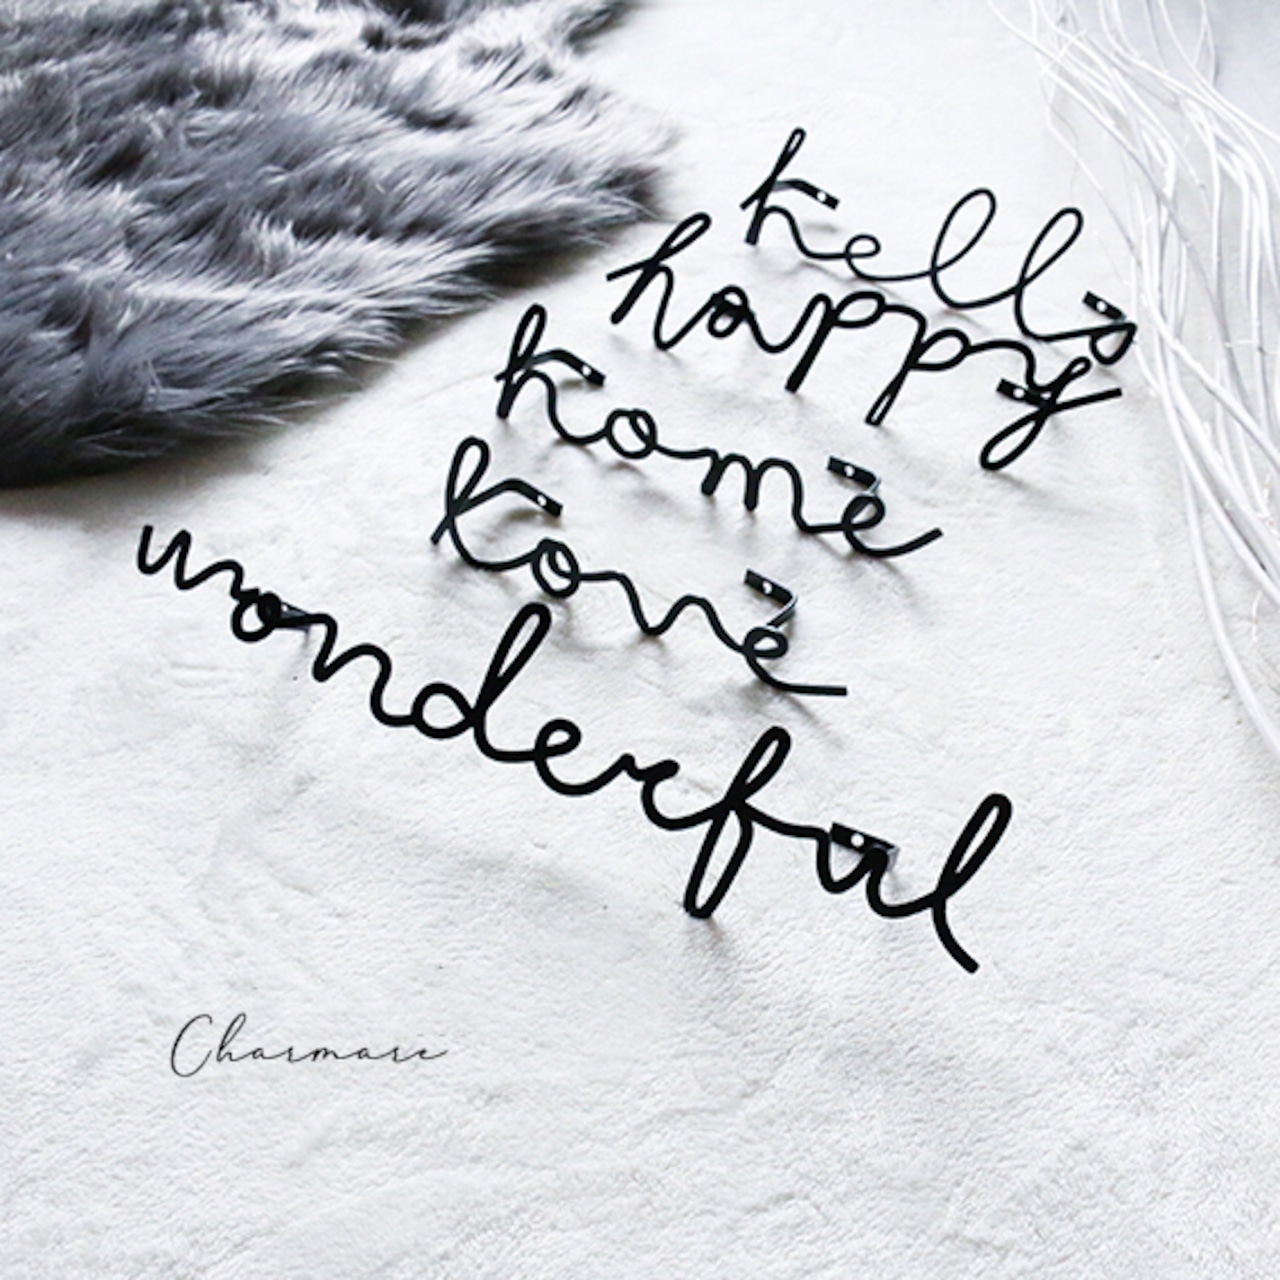 hello
happy
home
love
wonderful
Charmare